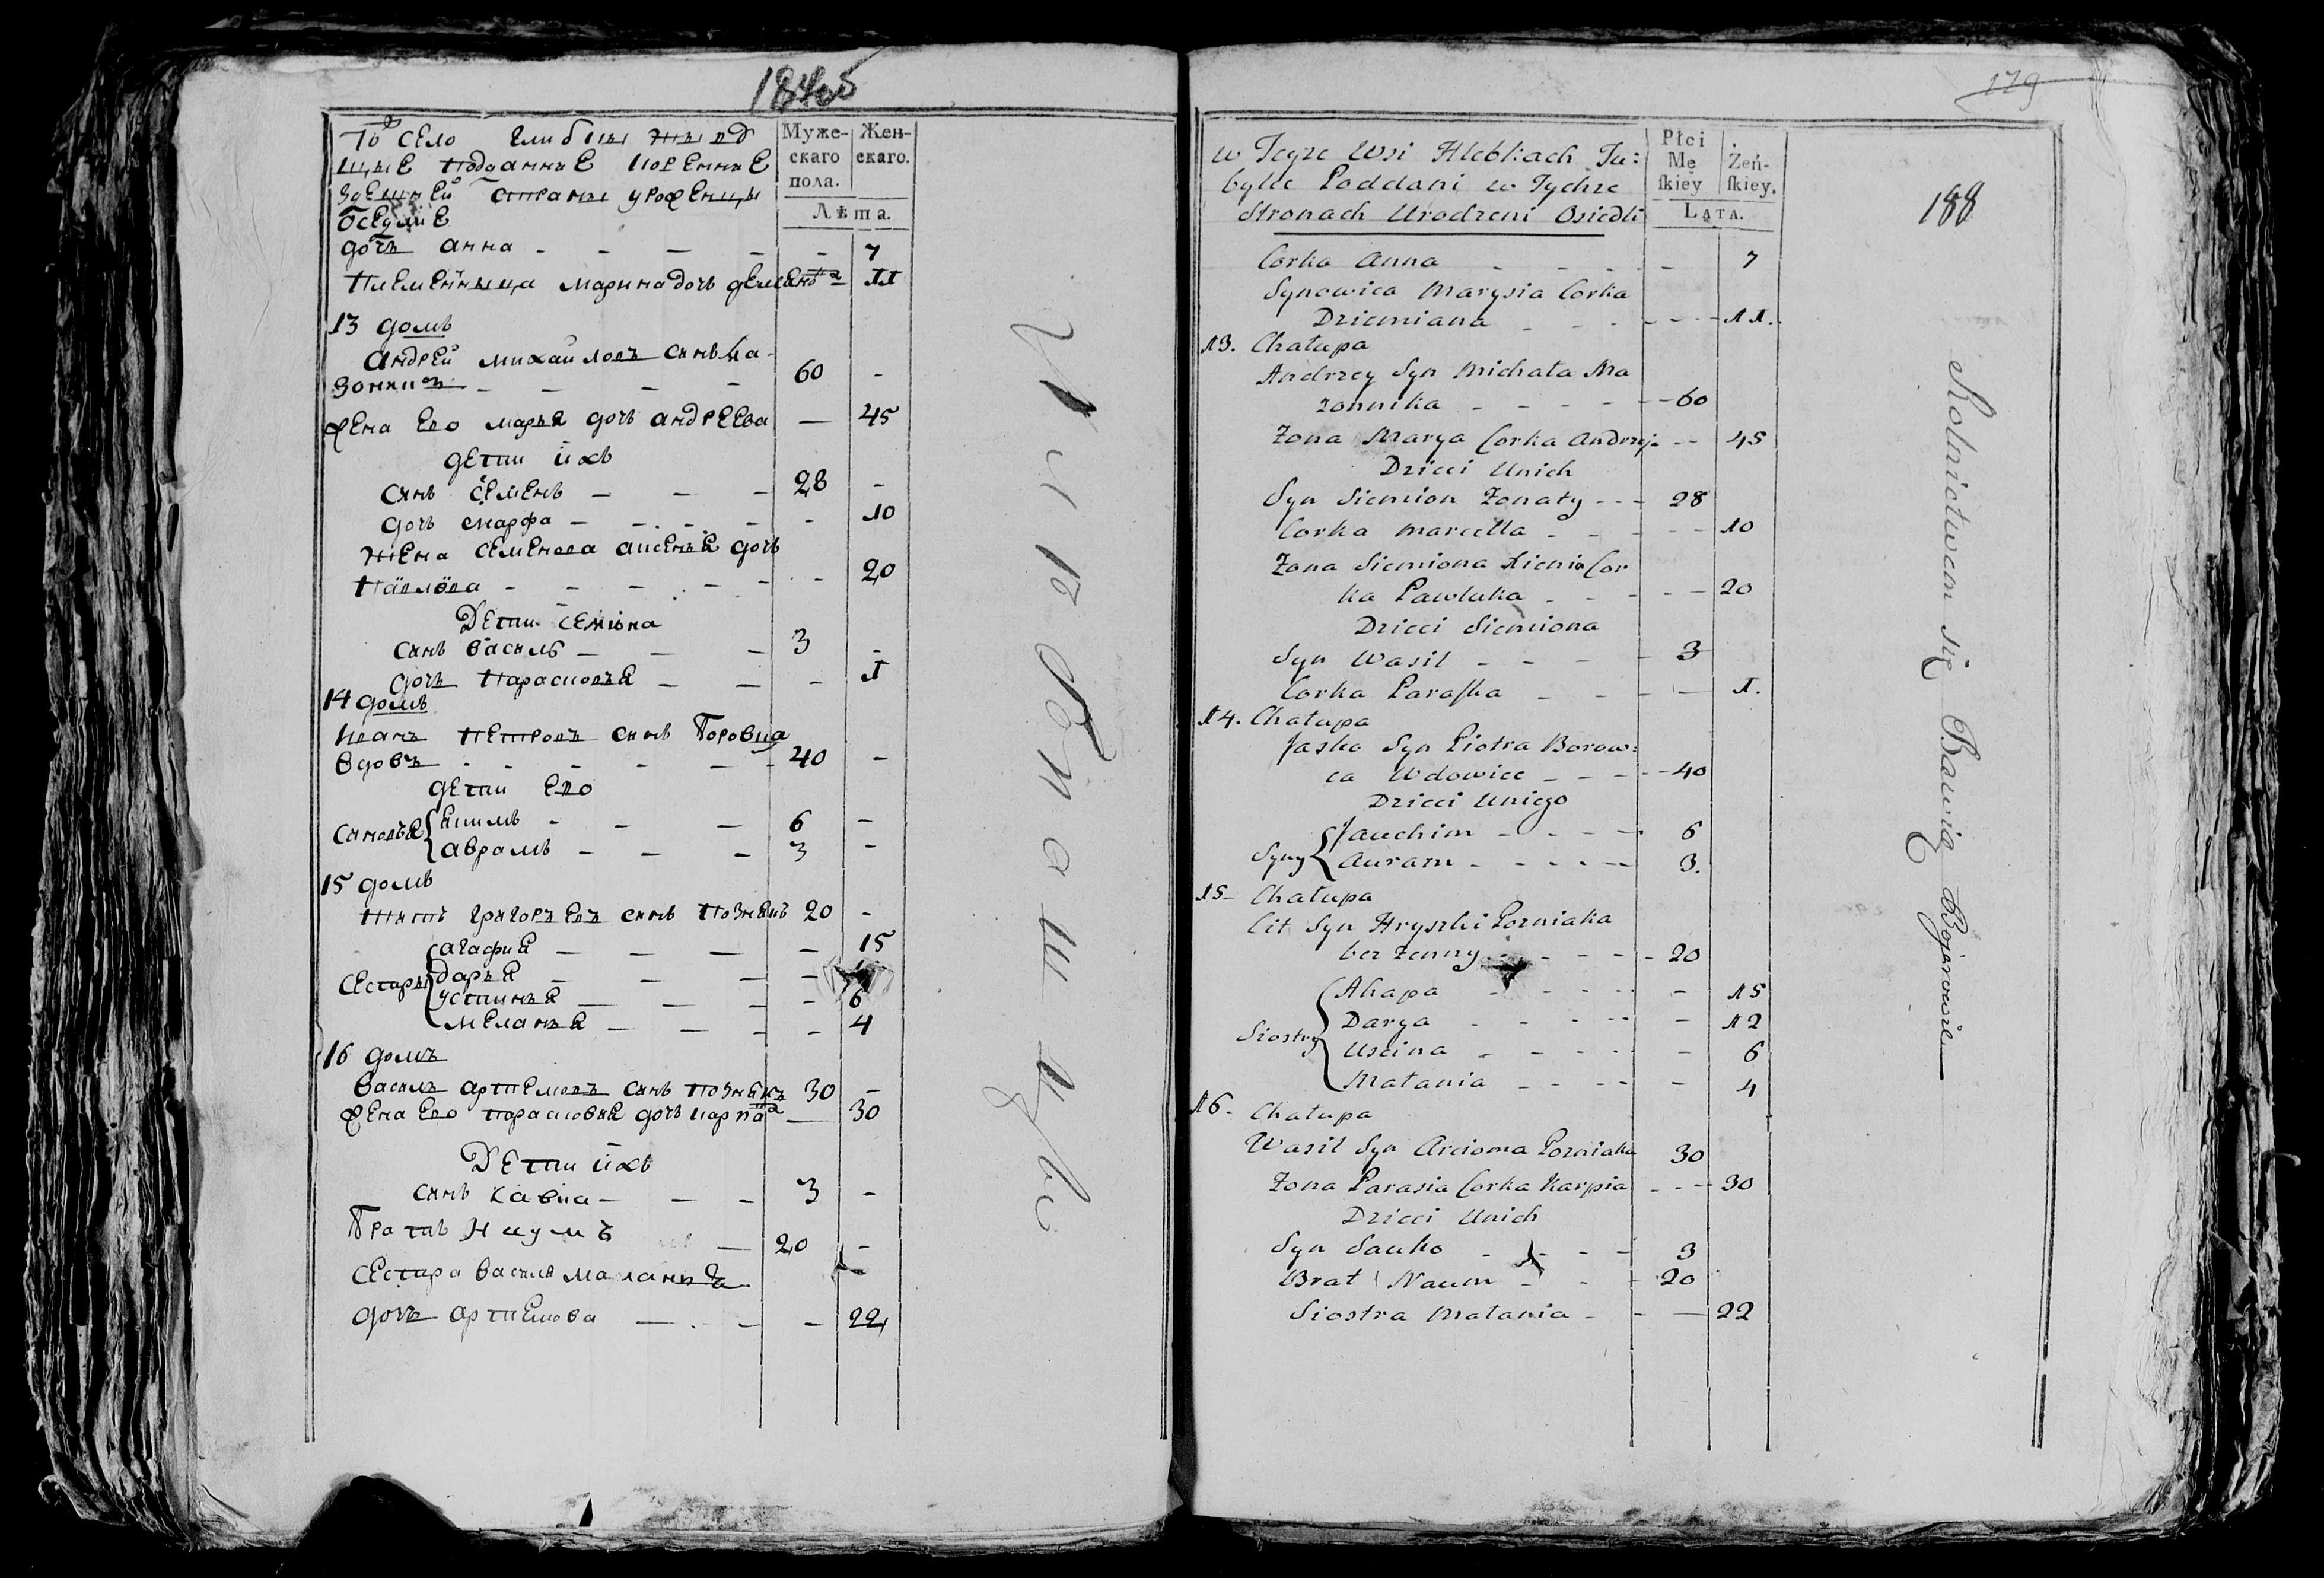 То село глибци
щые подданные коренные
здешней страны уроженцы
оседлие
Муже-
скаго
пола.
Жен-
скаго.
Лѣта.
дочь анна - - - - 7
племенница марина дочь 11
13 домъ
андрей михайловъ сынъ ма-
зонникъ - - - - 60 -
жена его марья дочь андреева — 45
дети ихъ
сынъ семенъ - - - 28 -
дочь марфа - - - - - 10
жена семенова аксенья дочь
павлова - - - - - - 20
Дети семиона
сынъ василь - - - 3 -
дочь парасковья - - - 1
14 домъ
иванъ петровъ сынъ боровца
вдовъ - - - - - - 40 -
дети его
сыновья { якимъ - - - 6 -
аврамъ - - - 3 -
15 домъ
титъ григорьевъ сынъ познякъ 20 -
сестары { агафия - - - - 15
дарья - - - -
устинья - - - - 6
меланья - - - - 4
16 домъ
василь артемовъ сынъ познякъ 30 -
жена его парасковья дочь карпова — 30
Дети ихъ
сынъ савка - - - 3 -
Братъ Наумъ — 20 -
сестара василя маланья —
дочь артемова - - - - 22
179
188
w Teyże Wsi Hlebkach Tu:
bylce Poddani w Tychże
Stronach Urodzeni Osiedli
Płci
Mę
skiey
Żeń-
skiey.
LATA.
Corka Anna - - - - - 7
Synowica Marysia Corka
Dziemiana - - - - - - 11.
13. Chałupa
Andrzey Syn Michała Ma
zonnika - - - - - - 60
Żona Marya Corka Andrzeja - - 45
Dzieci Unich
Syn Siemion Żonaty - - - 28
Corka Marcella - - - - - 10
Żona Siemiona Xienia Cor
ka Pawluka - - - - - 20
Dzieci Siemiona
Syn Wasil - - - - 3
Corka Paraska - - - - 1.
14. Chałupa
Jasko Syn Piotra Borow:
ca Wdowiec - - - - - 40
Dzieci Uniego
Syny { Jauchim - - - - 6
Auram - - - - - 3.
15- Chałupa
Cit Syn Hryszki Pozniaka
bez Żenny - - - - - 20
Siostry { Ahapa - - - - - 15
Darya - - - - - - 12
Uscina - - - - - 6
Małania - - - - - 4
16. Chałupa
Wasil Syn Arcioma Pozniaka 30
Żona Parasia Corka Karpia - - - 30
Dzieci Unich
Syn Sauko - - - - 3
Brat Naum - - - 20
Siostra Małania - - - 22
Rolnictwem się Bawią